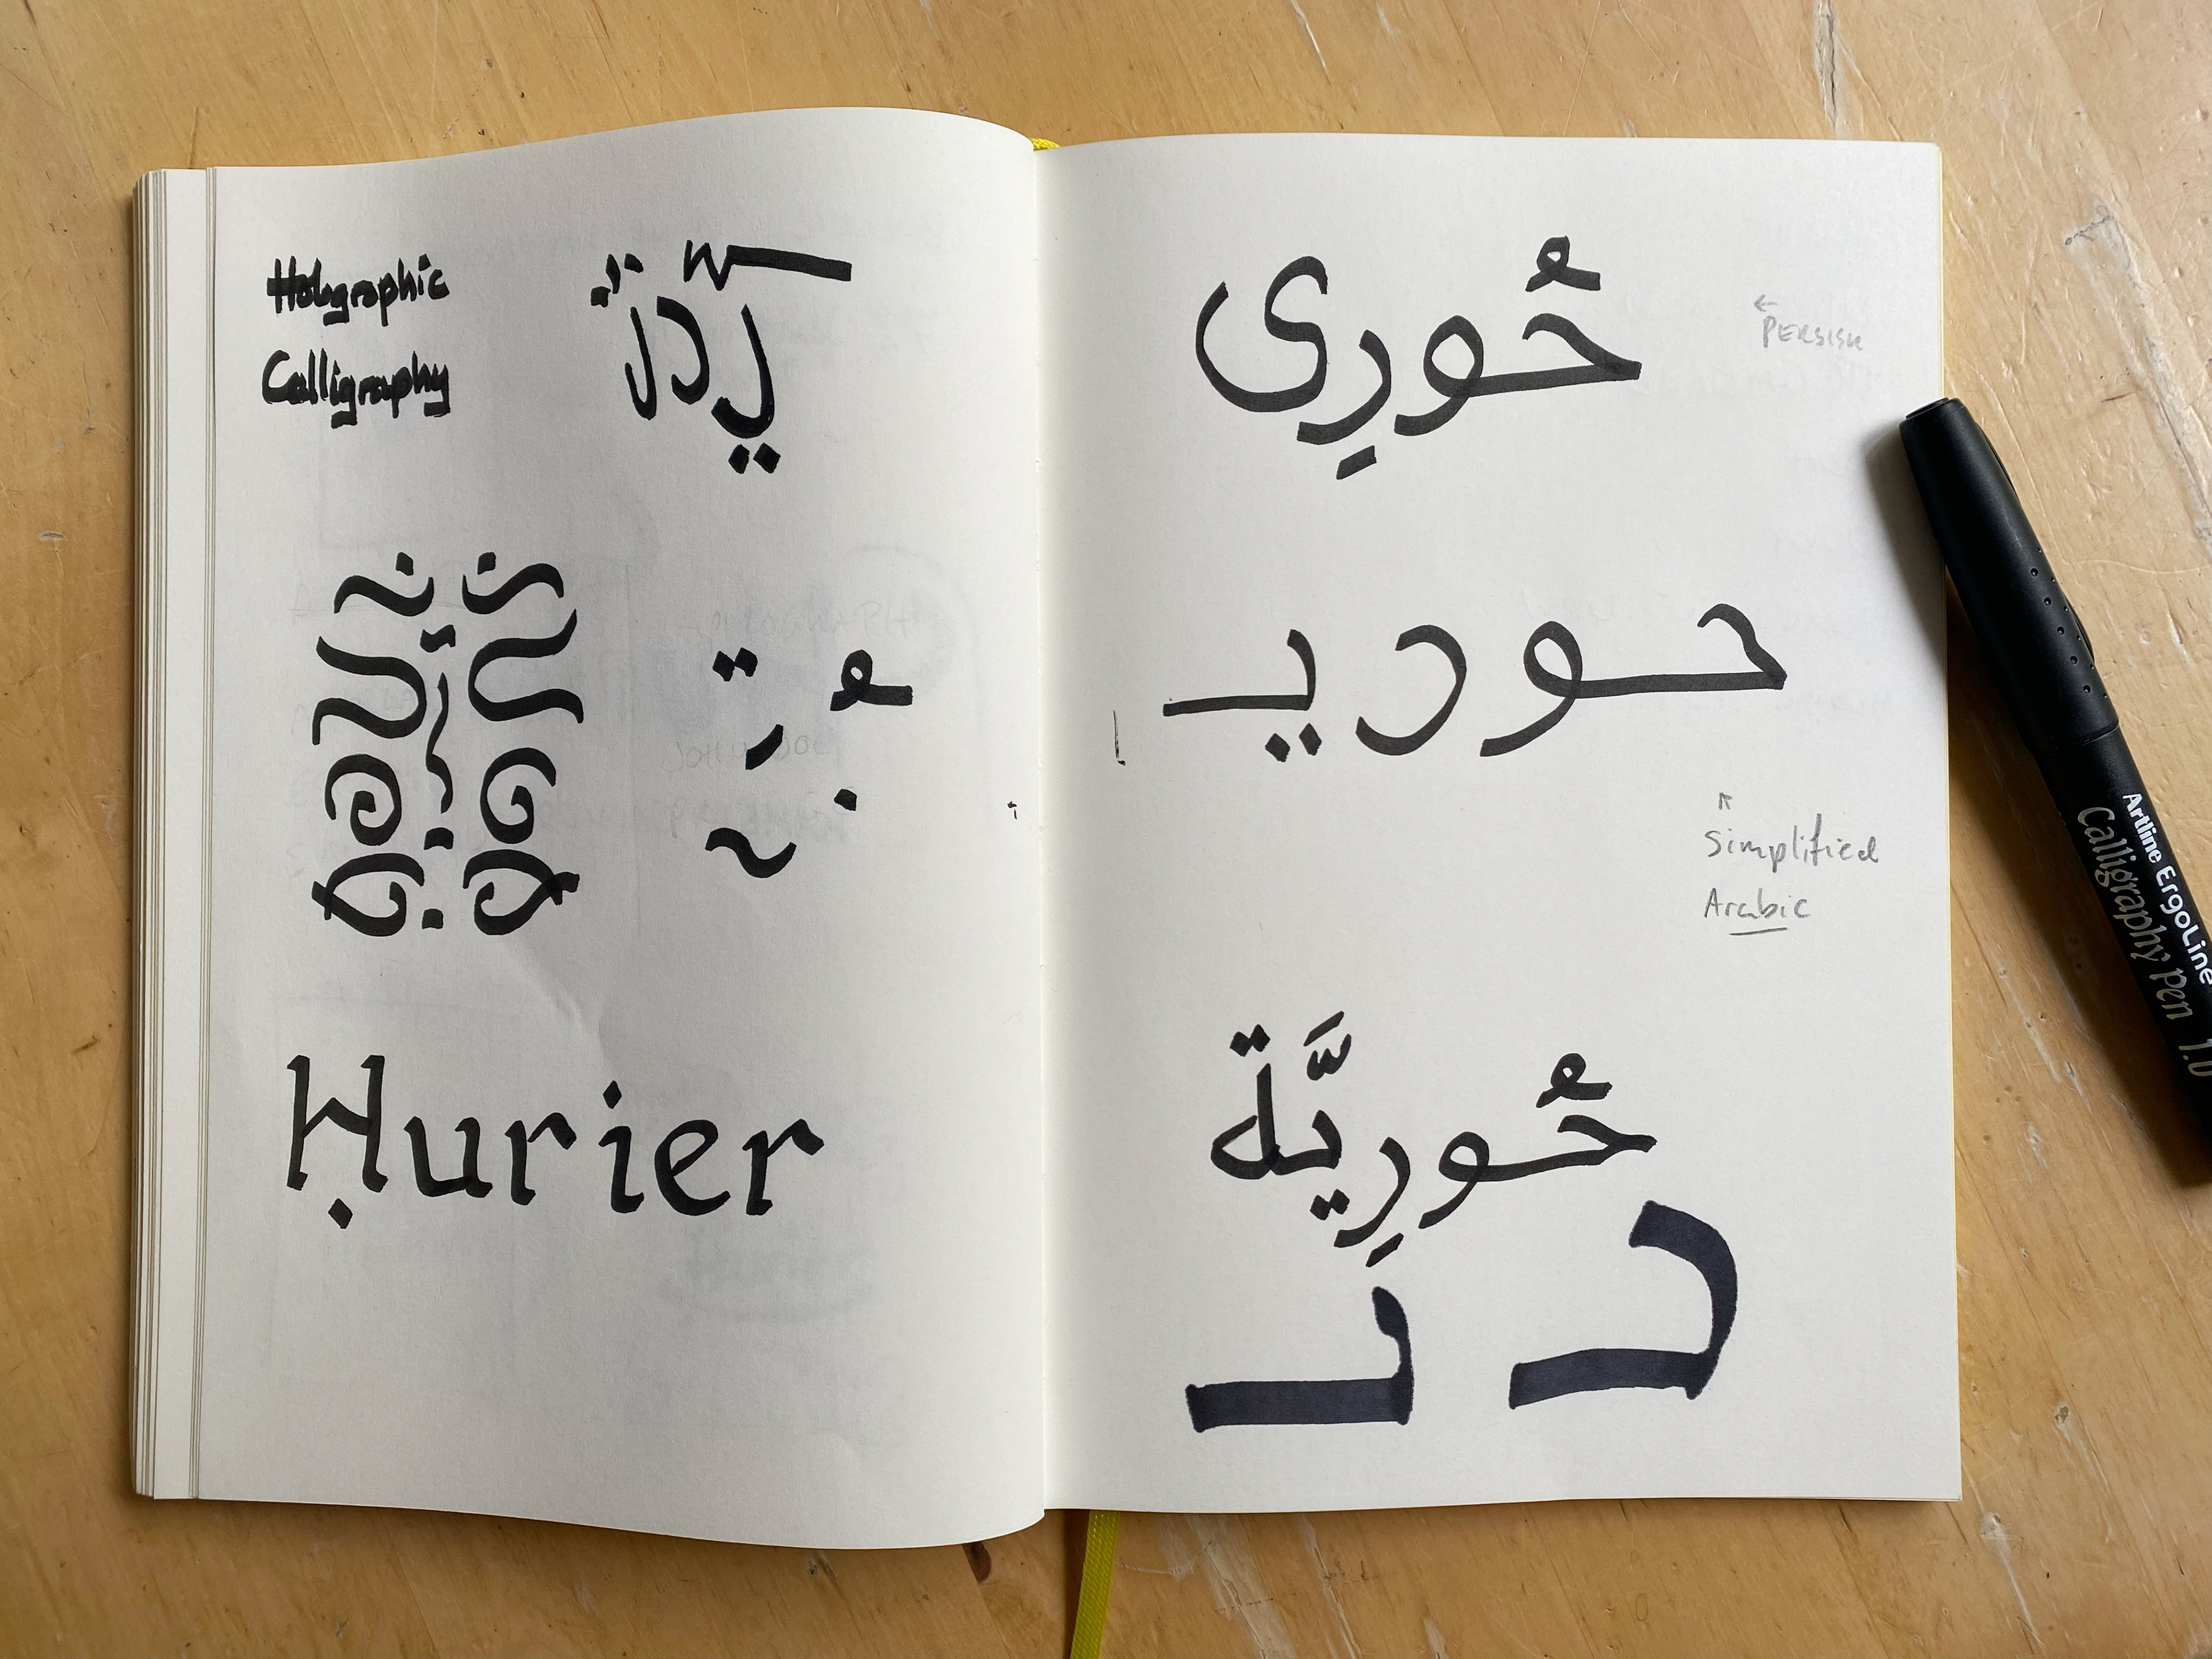 Holographic
Calligraphy
Ḥurier
حُورِى
← PERSISK
حوريـ
Simplified
Arabic
حُورِيَّة
Artline ErgoLine
Calligraphy Pen 1.0